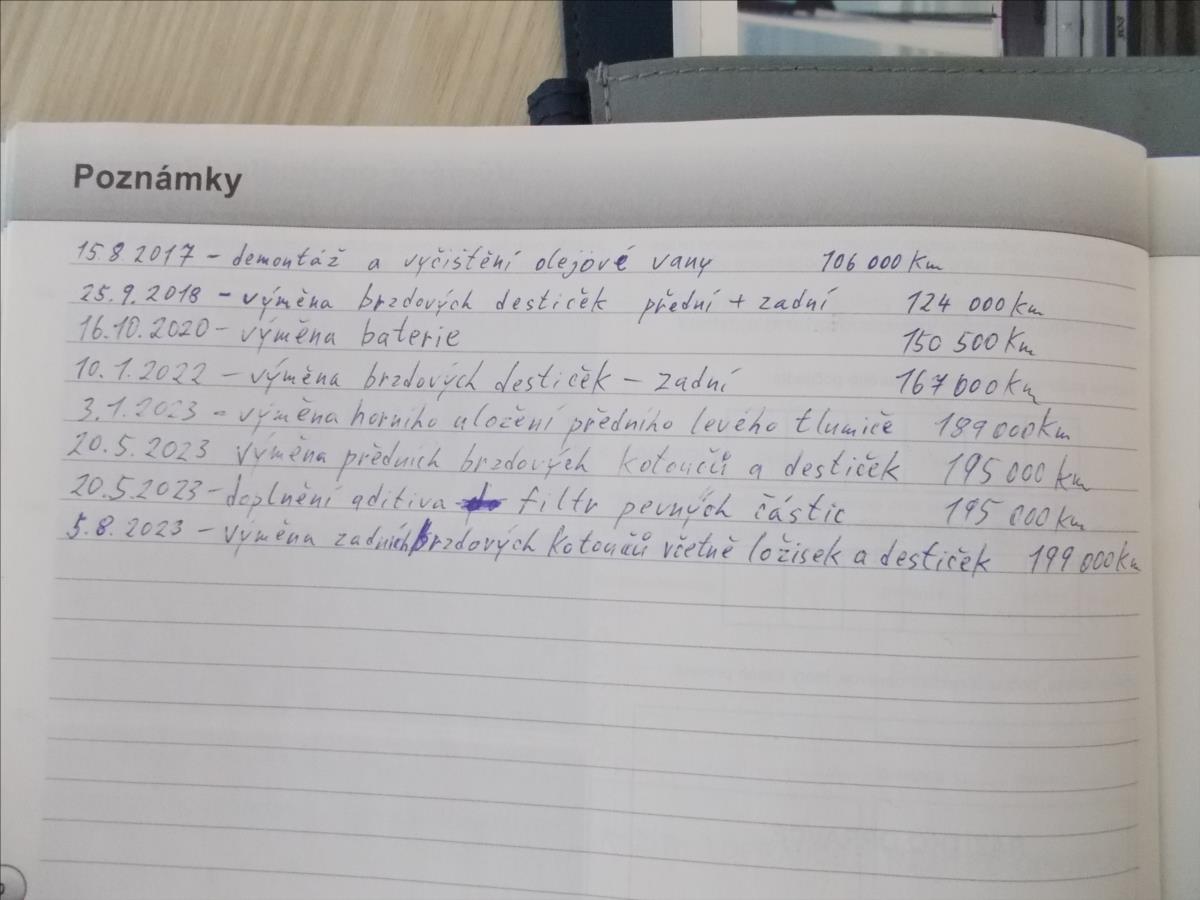 Poznámky
15.8.2017 - demontáž a vyčištění olejové vany 106 000 Km
25.9.2018 - výměna brzdových destiček přední + zadní 124 000 Km
16.10.2020 - výměna baterie 150 500 Km
10.1.2022 - výměna brzdových destiček - zadní 167 000 Km
3.1.2023 - výměna horního uložení předního levého tlumiče 189 000 Km
20.5.2023 výměna předních brzdových kotoučů a destiček 195 000 Km
20.5.2023 - doplnění aditiva filtr pevných částic 195 000 Km
5.8.2023 - výměna zadních brzdových kotoučů včetně ložisek a destiček 199 000 Km